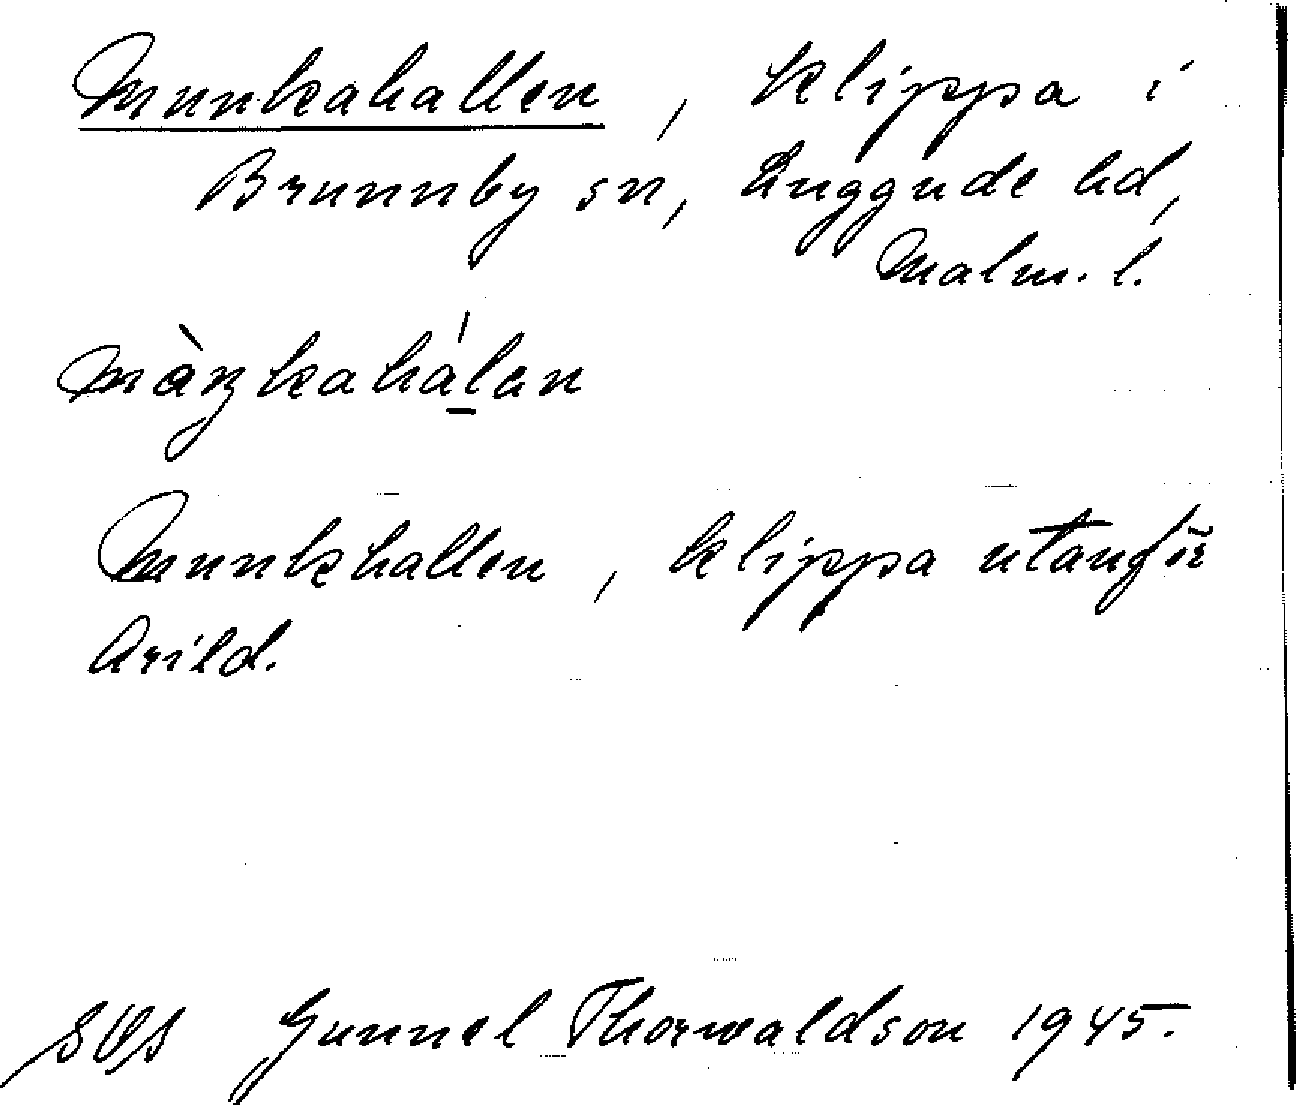 Munkahallen, klippa i
Brunnby sn, Luggude hd,
Malm. l.
màŋkahálan
Munkhallen, klippa utanför
Arild.
Gunnel Thorwaldson 1945.